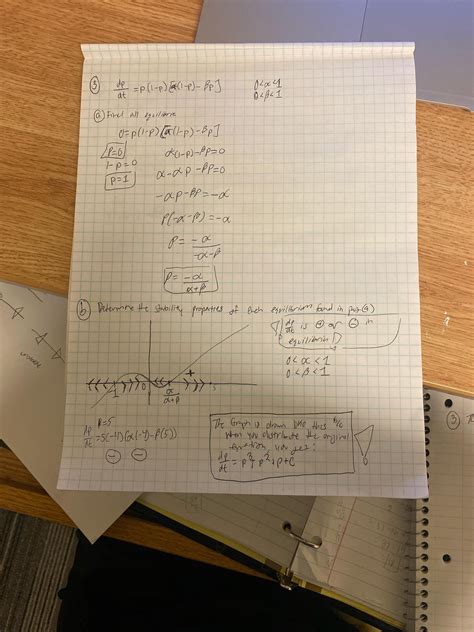 ③ dp/dt = p(1-p)[α(1-p)-βp] 0<α<1
0<β<1
ⓐ Find all equilibria
0=p(1-p)[α(1-p)-βp]
p=0 α(1-p)-βp=0
1-p=0
p=1 α-αp-βp=0
-αp-βp=-α
p(-α-β)=-α
p= -α/-α-β
p= -α/α+β
ⓑ Determine the stability properties of each equilibrium found in part ⓐ
dp/dt is ⊕ or ⊖ in
equilibrium
0<α<1
0<β<1
+
1 0 α/α+β
p=5
dp/dt=5(-4)(α(-4)-β(5))
⊖ ⊖
The Graph is drawn like this b/c
when you distribute the original
equation, you get:
dp/dt = p³+p²+p+C
③